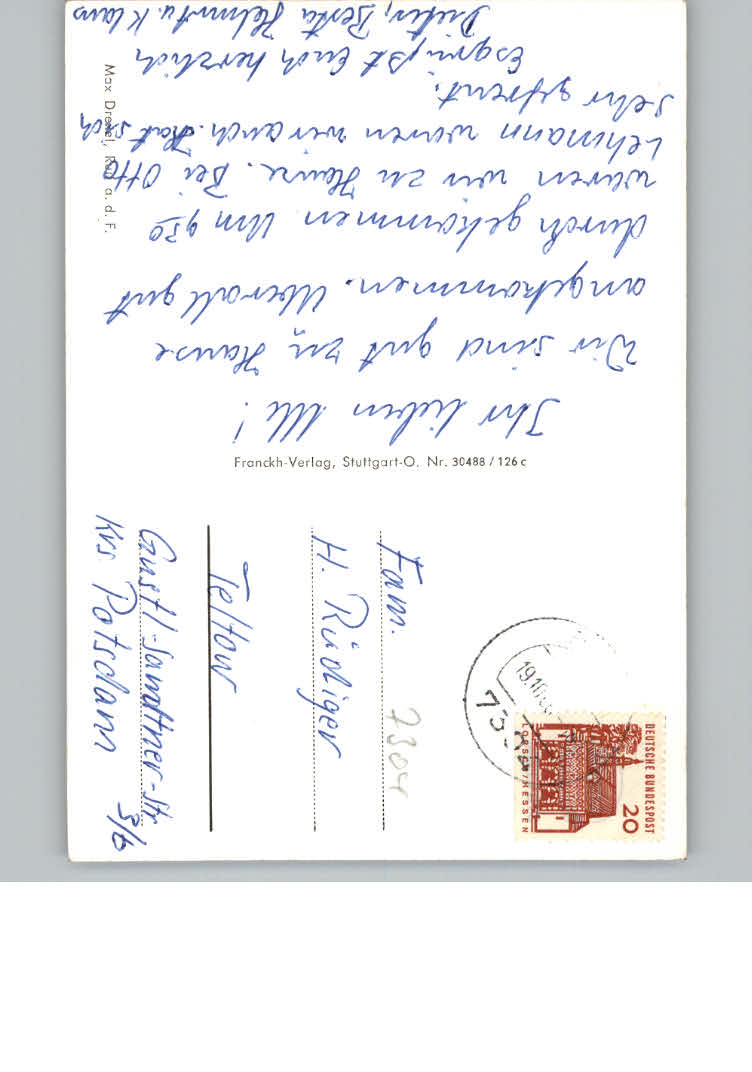 Ihr lieben All!
Wir sind gut zu Hause
angekommen. Überall gut
durch gekommen Um 9 30
waren wir zu Hause. Bei Otto
Lehmann waren wir auch. Hat sich
sehr gefreut.
Es grüßt Euch herzlich
Dieter, Berta Helmut u. Klaus
Franckh-Verlag, Stuttgart-O. Nr. 30488 / 126 c
Max Drexel, a. d. F.
Fam.
H. Rüdiger
Teltow
Gustl-Sandtner-Str.
Krs. Potsdam
3/6
7304
19.10.
DEUTSCHE BUNDESPOST
20
LORSCH/HESSEN